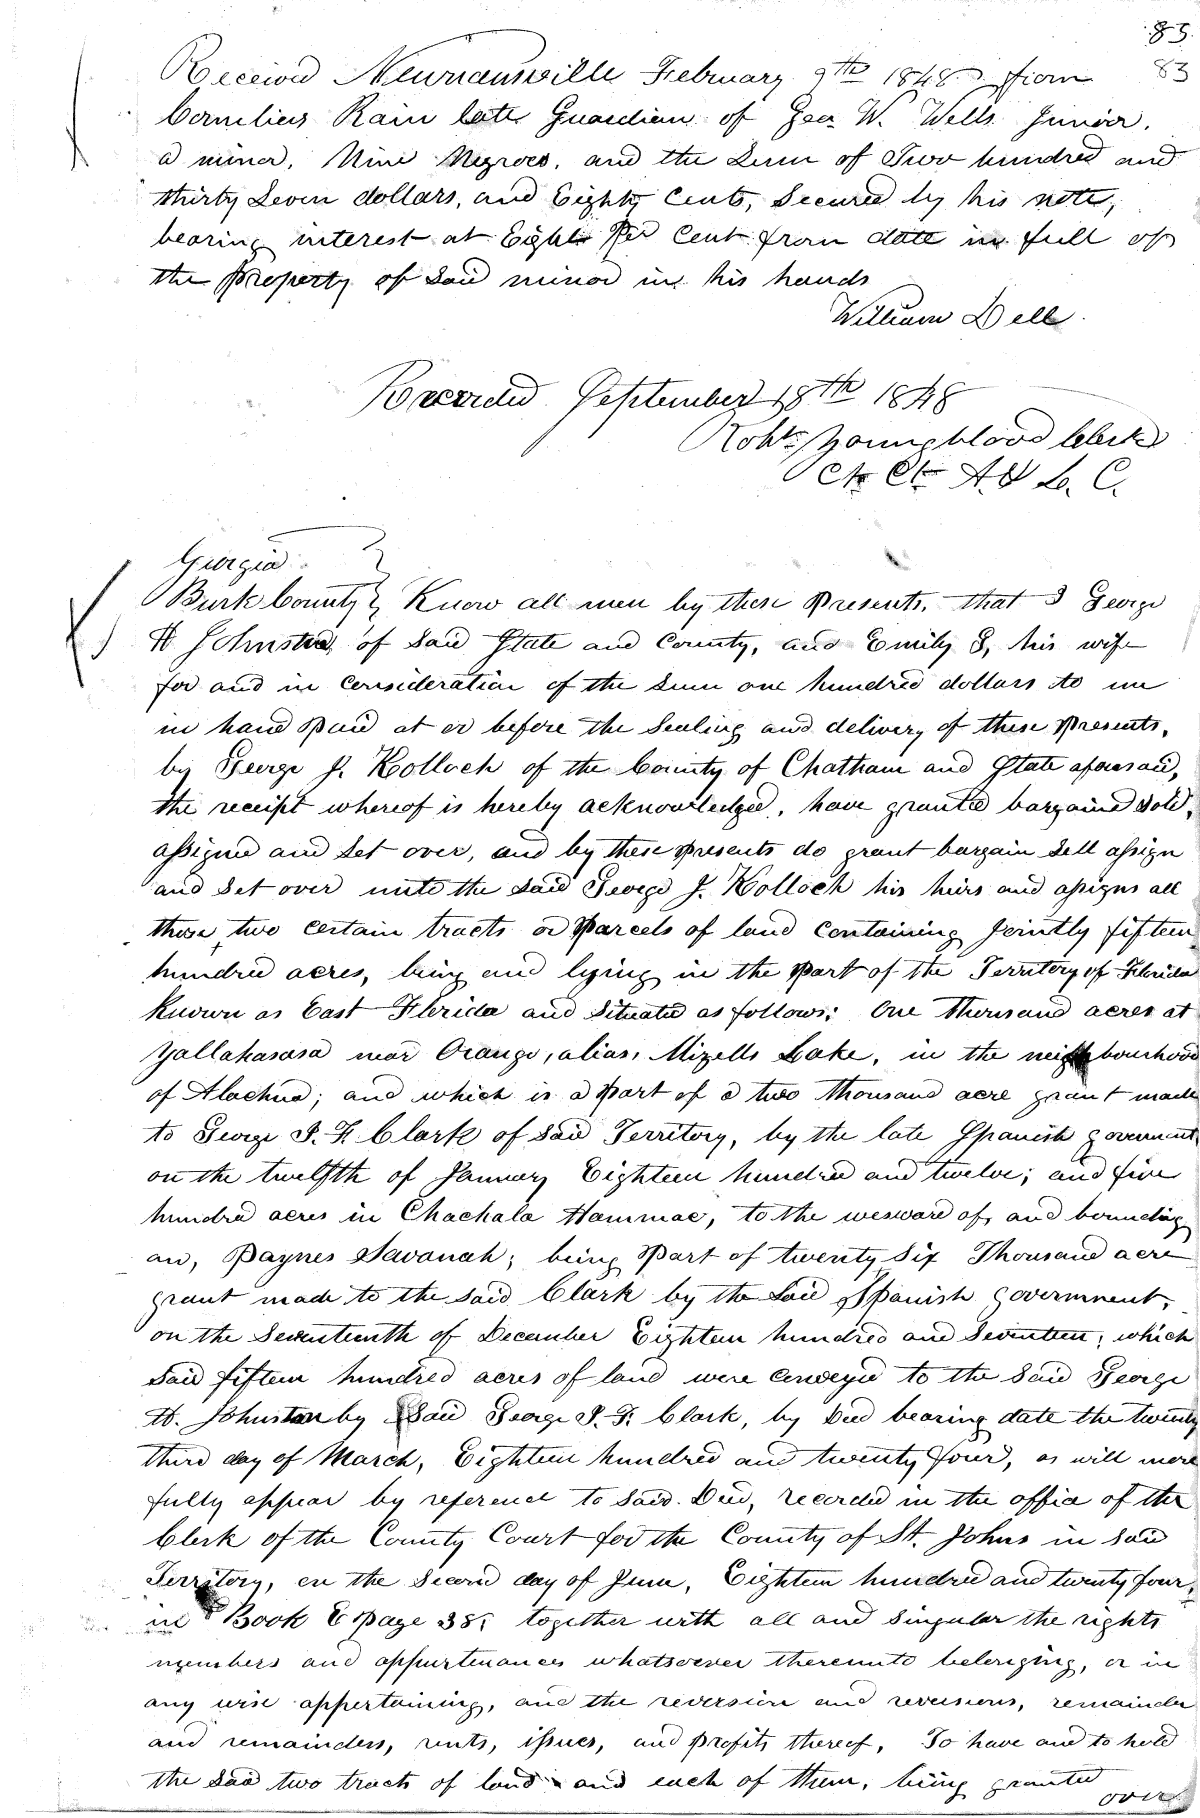 85
83
Received Newnansville February 9th 1848 from
Cornelius Rain late Guardian of Geo. W. Wells Junior,
a minor, Nine Negroes, and the Sum of Two hundred and
thirty Seven dollars, and Eighty Cents, Secured by his note,
bearing interest at Eight Per Cent from date in full of
the Property of Said minor in his hands
William Dell
Recorded September 18th 1848
Robt. Youngblood Clerk
Ck Ct A. & L. C.
Georgia
Burk County } Know all men by these Presents, that I George
H Johnston, of Said State and County, and Emily S, his wife
for and in Consideration of the Sum one hundred dollars to me
in hand Paid at or before the Sealing and delivery of these Presents,
by George J. Kolloch of the County of Chatham and State aforesaid,
the receipt whereof is hereby acknowledged, have granted bargained Sold,
assigned and Set over, and by these presents do grant bargain Sell assign
and Set over unto the Said George J. Kolloch his heirs and assigns all
those two certain tracts or Parcels of land Containing Jointly fifteen
hundred acres, being and lying in the Part of the Territory of Florida
known as East Florida and Situated as follows: One Thousand acres at
Yallahasasa near Orange, alias, Mizells Lake, in the neighbourhood
of Alachua; and which is a Part of a two Thousand acre grant made
to George J. F. Clark of Said Territory, by the late Spanish government
on the twelfth of January Eighteen hundred and twelve; and five
hundred acres in Chachala Hammac, to the wesward of, and bounding
on, Paynes Savanah; being Part of twenty Six Thousand acre
grant made to the Said Clark by the Said Spanish government,
on the Seventeenth of December Eighteen hundred and Seventeen; which
Said fifteen hundred acres of land were Conveyed to the Said George
H. Johnston by Said George J. F. Clark, by Deed bearing date the twenty
third day of March, Eighteen hundred and twenty four, as will more
fully appear by reference to Said Deed, recorded in the office of the
Clerk of the County Court for the County of St. Johns in Said
Territory, on the Second day of June, Eighteen hundred and twenty four,
in Book E Page 38; together with all and Singular the rights
members and appurtenances whatsoever thereunto belonging, or in
any wise appertaining, and the reversion and reversions, remainder
and remainders, rents, issues, and profits thereof. To have and to hold
the Said two tracts of land and each of them, being granted
over